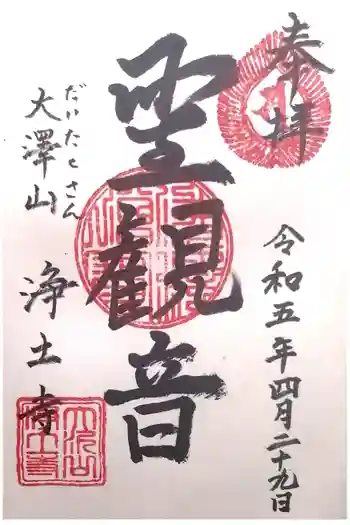 奉拝
令和五年四月二十九日
聖觀音
だいたくさん
大澤山 浄土寺